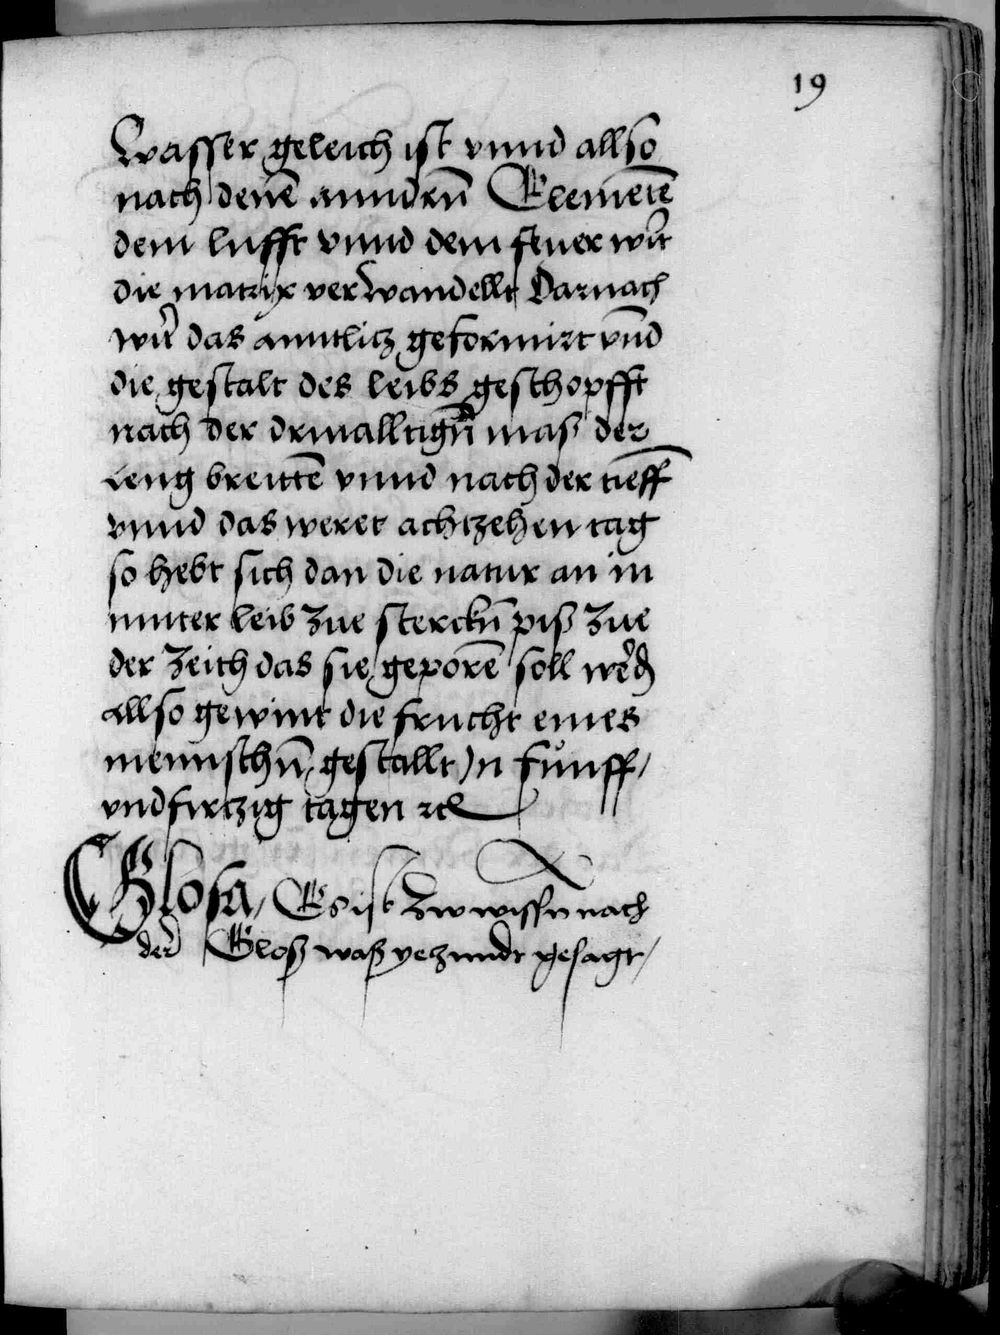 19
wasser geleich ist vnnd allso
nach denē anndrn̄ Elemētē
dem lufft vnnd dem feuer wirt
die matrix verwandellt Darnach
wirt das anntlitz geformirt vnd
die gestalt des leibs geschopfft
nach der drivalltign̄ mass der
leng breittē vnnd nach der tieff
vnnd das weret achtzehen tag
so hebt sich dan die natur an in
muter leib zue sterckn̄ piss zue
der zeith das sie geporē soll werdn
allso gewint die frucht eines
mennschn̄ gestallt Jn fünff/
vnd firtzig tagen ꝛc
Glosa/ Es ist zw wissn nach
der Gloss wass yetzundt gesagt/